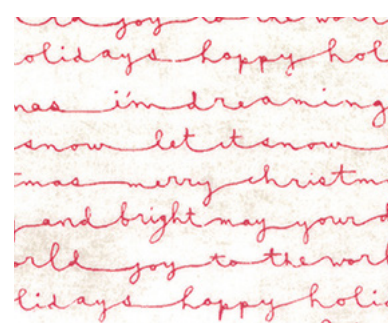 joy to the worl
olidays happy hol
mas i'm dreaming
snow let it snow
tmas merry christm
and bright may your d
orld joy to the worl
lidays happy holi